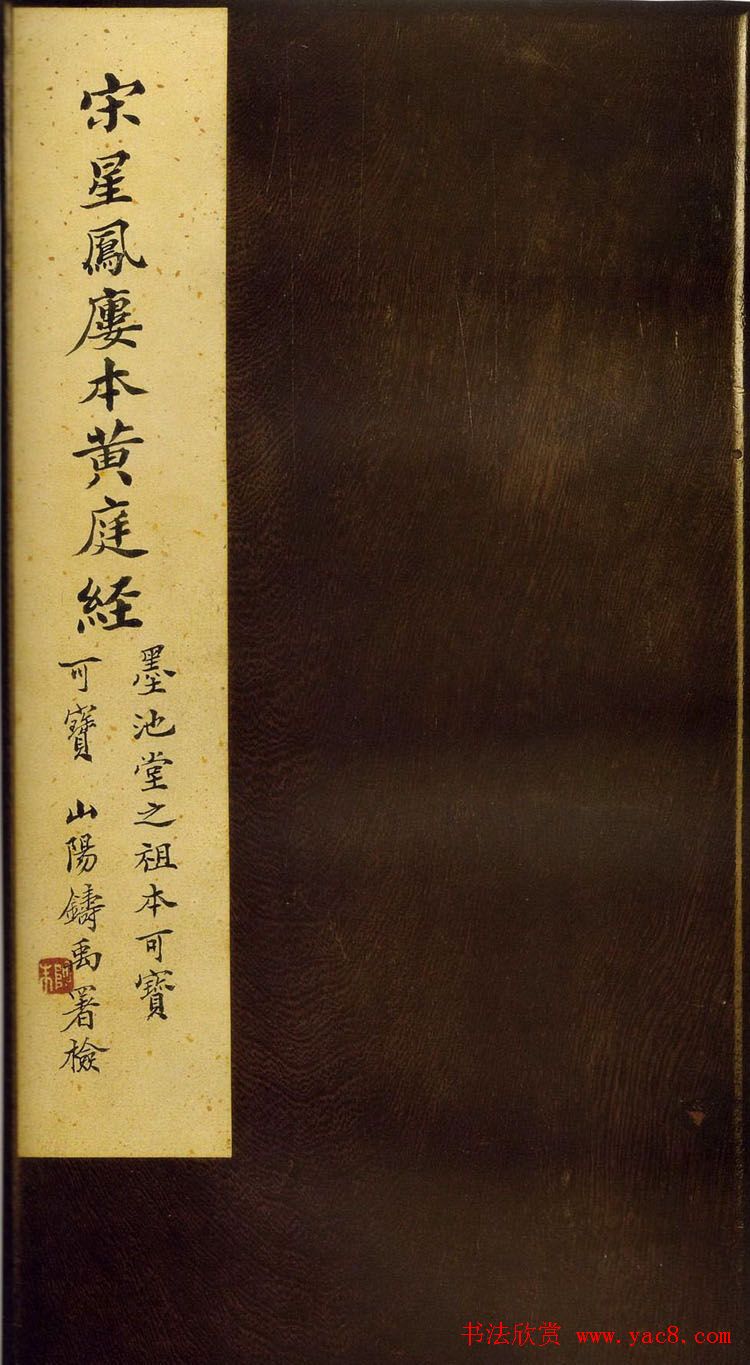 宋星鳳廔本黄庭経
墨池堂之祖本可寶
可寶 山陽鑄禹署檢
书法欣赏 www.yac8.com